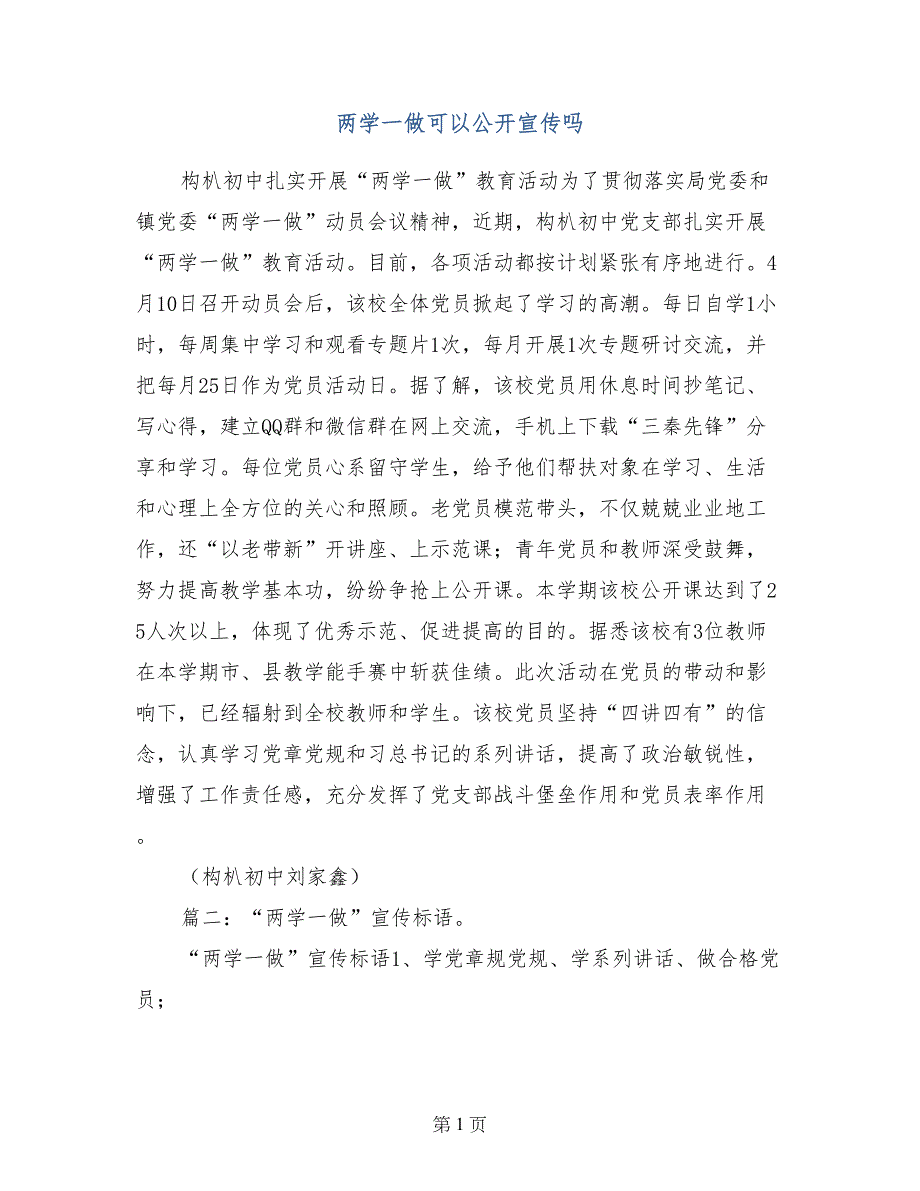 两学一做可以公开宣传吗
构朳初中扎实开展“两学一做”教育活动为了贯彻落实局党委和
镇党委“两学一做”动员会议精神，近期，构朳初中党支部扎实开展
“两学一做”教育活动。目前，各项活动都按计划紧张有序地进行。4
月10日召开动员会后，该校全体党员掀起了学习的高潮。每日自学1小
时，每周集中学习和观看专题片1次，每月开展1次专题研讨交流，并
把每月25日作为党员活动日。据了解，该校党员用休息时间抄笔记、
写心得，建立QQ群和微信群在网上交流，手机上下载“三秦先锋”分
享和学习。每位党员心系留守学生，给予他们帮扶对象在学习、生活
和心理上全方位的关心和照顾。老党员模范带头，不仅兢兢业业地工
作，还“以老带新”开讲座、上示范课；青年党员和教师深受鼓舞，
努力提高教学基本功，纷纷争抢上公开课。本学期该校公开课达到了2
5人次以上，体现了优秀示范、促进提高的目的。据悉该校有3位教师
在本学期市、县教学能手赛中斩获佳绩。此次活动在党员的带动和影
响下，已经辐射到全校教师和学生。该校党员坚持“四讲四有”的信
念，认真学习党章党规和习总书记的系列讲话，提高了政治敏锐性，
增强了工作责任感，充分发挥了党支部战斗堡垒作用和党员表率作用
。
（构朳初中刘家鑫）
篇二：“两学一做”宣传标语。
“两学一做”宣传标语1、学党章规党规、学系列讲话、做合格党
员；
第 1 页